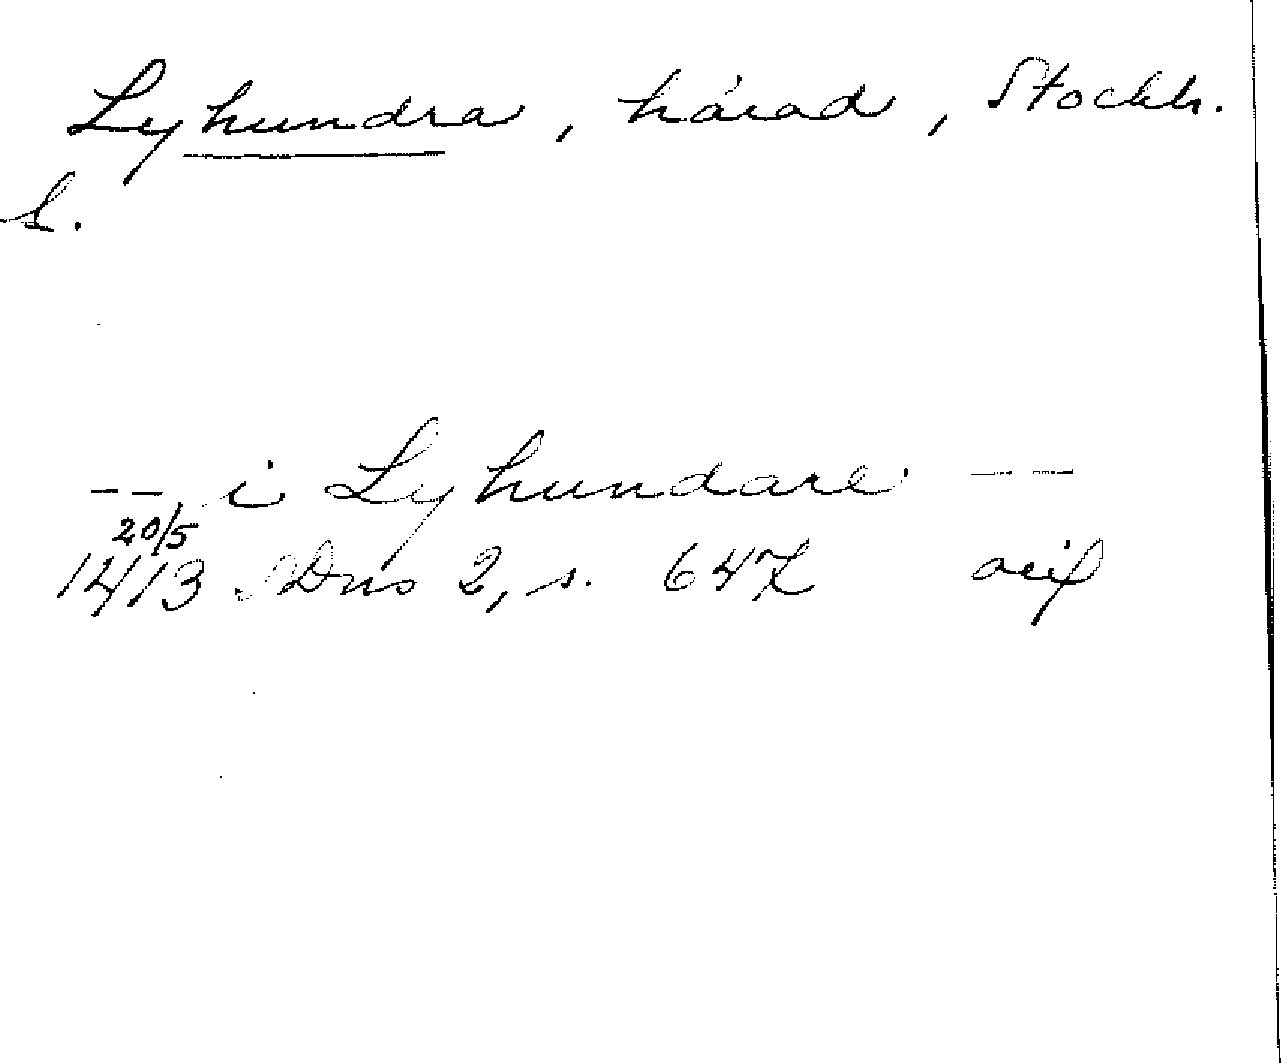 Lyhundra, härad, Stockh.
l.
-- i Lyhundare --
20/5
1413 SDns 2, s. 647 oif